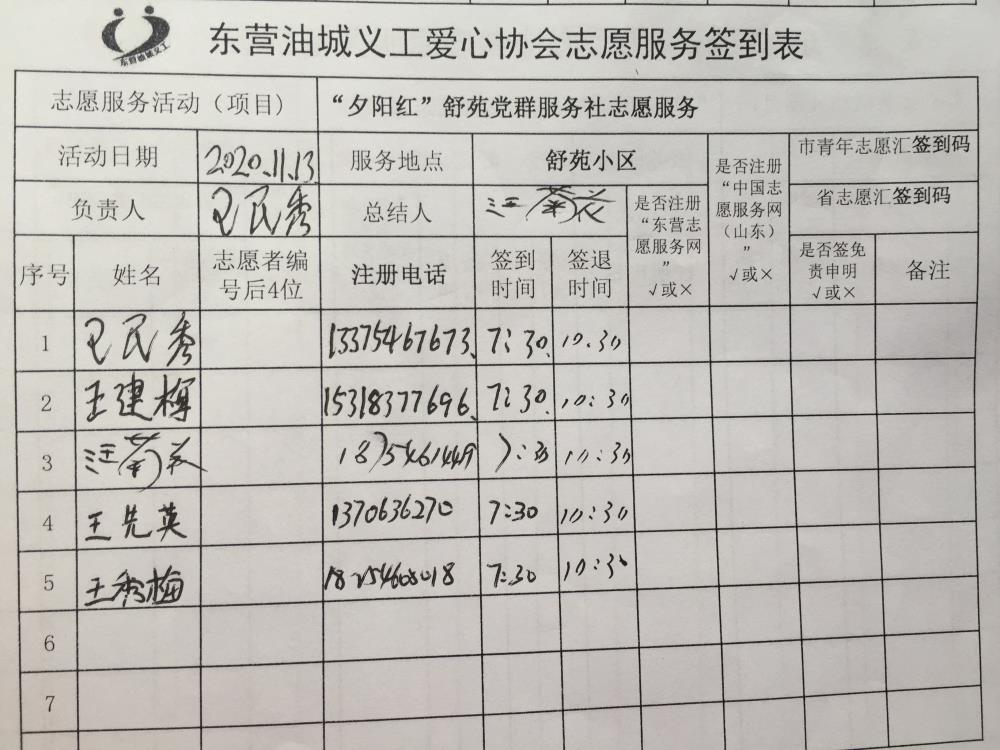 东营油城义工
东营油城义工爱心协会志愿服务签到表
志愿服务活动（项目） “夕阳红”舒苑党群服务社志愿服务
活动日期 2020.11.13 服务地点 舒苑小区 是否注册“中国志愿服务网（山东）”√或× 市青年志愿汇签到码
负责人 民秀 总结人 汪菊花 是否注册“东营志愿服务网”√或× 省志愿汇签到码
序号 姓名 志愿者编号后4位 注册电话 签到时间 签退时间 是否签免责申明√或× 备注
1 民秀 13375467673 7:30 10.30
2 王建梅 15318377696 7:30 10:30
3 汪菊花 7:30 10:30
4 王先英 1370636270 7:30 10:30
5 王秀梅 7:30 10:30
6
7